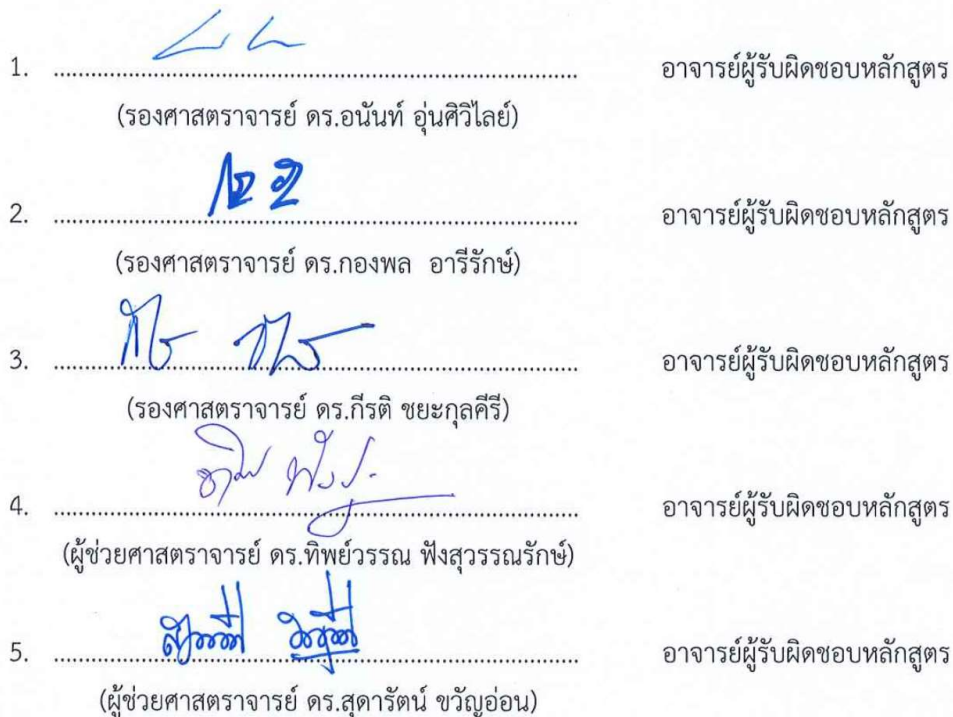 1. .......................................................................... อาจารย์ผู้รับผิดชอบหลักสูตร
(รองศาสตราจารย์ ดร.อนันท์ อุ่นศิวิไลย์)
2. .......................................................................... อาจารย์ผู้รับผิดชอบหลักสูตร
(รองศาสตราจารย์ ดร.กองพล อารีรักษ์)
3. .......................................................................... อาจารย์ผู้รับผิดชอบหลักสูตร
(รองศาสตราจารย์ ดร.กีรติ ชยะกุลคีรี)
4. .......................................................................... อาจารย์ผู้รับผิดชอบหลักสูตร
(ผู้ช่วยศาสตราจารย์ ดร.ทิพย์วรรณ ฟังสุวรรณรักษ์)
5. .......................................................................... อาจารย์ผู้รับผิดชอบหลักสูตร
(ผู้ช่วยศาสตราจารย์ ดร.สุดารัตน์ ขวัญอ่อน)